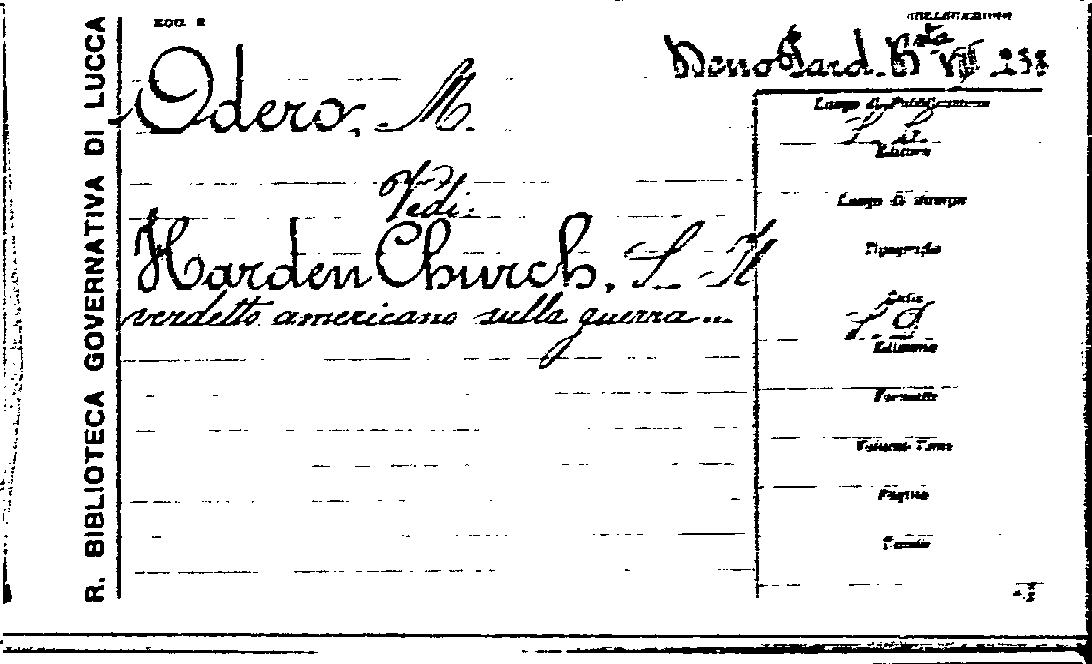 R. BIBLIOTECA GOVERNATIVA DI LUCCA
MOD. E
COLLOCAZIONE
Odero, M.
Vedi:
Harden Church, S. Il
verdetto americano sulla guerra...
Luogo di Pubblicazione
S. L.
Editore
Luogo di stampa
Tipografia
Data
Edizione
Formato
Volume-Tomo
Pagine
Tavole